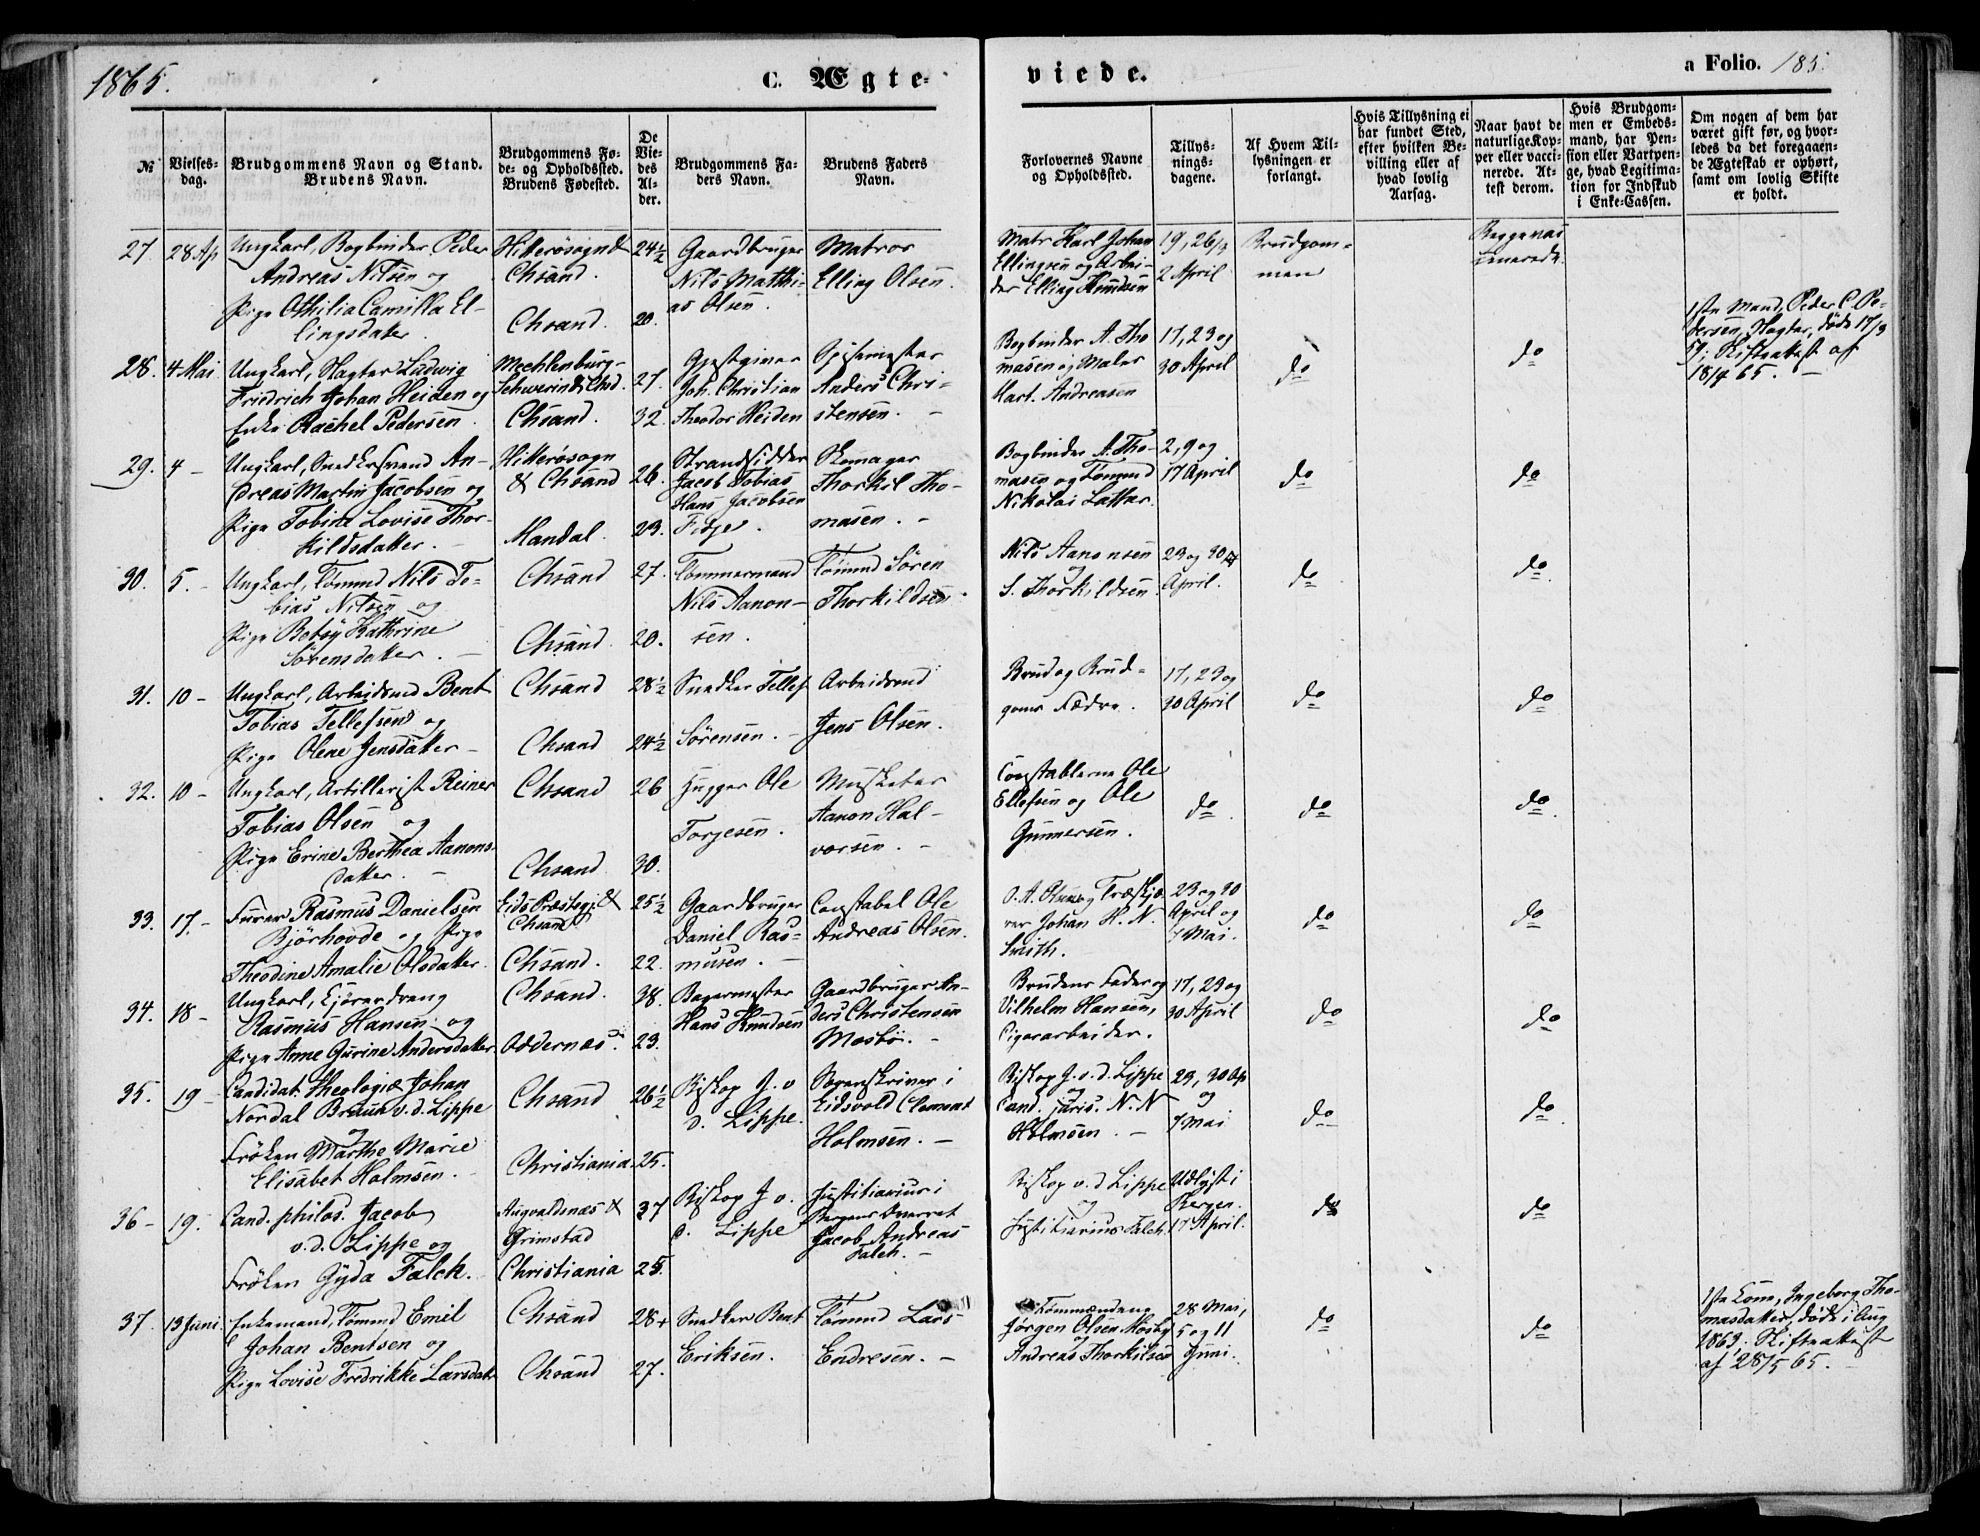 1865.
C. Ægte-
viede.
a Folio. 185.
№
Vielses-
dag.
Brudgommens Navn og Stand.
Brudens Navn.
Brudgommens Fø-
de- og Opholdssted.
Brudens Fødested.
De
Vie-
des
Al-
der.
Brudgommens Fa-
ders Navn.
Brudens Faders
Navn.
Forlovernes Navne
og Opholdssted.
Tillys-
nings-
dagene.
Af Hvem Til-
lysningen er
forlangt.
Hvis Tillysning ei
har fundet Sted,
efter hvilken Be-
villing eller af
hvad lovlig
Aarsag.
Naar havt de
naturlige Kop-
per eller vacci-
nerede. At-
test derom.
Hvis Brudgom-
men er Embeds-
mand, har Pen-
sion eller Vartpen-
ge, hvad Legitima-
tion for Indskud
i Enke-Cassen.
Om nogen af dem har
været gift før, og hvor-
ledes da det foregaaen-
de Ægteskab er ophørt,
samt om lovlig Skifte
er holdt.
27. 28 Ap
Ungkarl, Bogbinder Peder
Andreas Nilsen og
Pige Othilia Camilla El-
lingsdatter.
Hitterøsogn &
Chsand.
Chsand.
24½
20.
Gaardbruger
Nils Matthi-
as Olsen.
Matros
Elling Olsen.
Matr Karl Johan
Ellingsen og Arbei-
der Elling Knudsen
19, 26/3
2 April
Brudgom-
men
Begge vac
cinerede.
28. 4 Mai
Ungkarl, Slagter Ludwig
Friedrich Johan Heiden og
Enke Rachel Pedersen
Mechlenburg-
Schwerin & Chsd.
Chsand.
27.
32.
Gjestgiver
Joh. Christian
Theodor Heiden
Spisemester
Anders Chri-
stensen. -
Bogbinder A. Tho
masen og Maler
Hart. Andreasen
17, 23 og
30 April
do
do
1ste Mand, Peder C. Pe-
dersen, Slagter, døde 17/9
59; Skifteattest af
18/4 65. -
29. 4 -
Ungkarl, Snedkersvend An-
dreas Martin Jacobsen og
Pige Tobine Lovise Thor-
kildsdatter. -
Hitterøsogn
& Chsand
Mandal.
26.
23.
Strandsidder
Jacob Tobias
Hans Jacobsen
Fidje.
Skomager
Thorkil Tho-
masen. -
Bogbinder A. Tho-
masen og Tømmd
Nikolai Latter.
2, 9 og
17 April
do
do
30. 5. -
Ungkarl, Tømmd Nils To-
bias Nilsen og
Pige Betsy Kathrine
Sörensdatter. -
Chsand
Chsand.
27.
20.
Tømmermand
Nils Aanon-
sen.
Tømmd Søren
Thorkildsen
Nils Aanonsen
og
S. Thorkildsen
23 og 30
April.
do
do.
31. 10 -
Ungkarl, Arbeidsmd Bent
Tobias Tellefsen og
Pige Olene Jensdatter -
Chsand
Chsand
28½
24½
Snedker Tellef
Sörensen. -
Arbeidsmd
Jens Olsen.
Brud og Brud-
goms Fædre.
17, 23 og
30 April
do
do
32. 10 -
Ungkarl, Artillerist Reiner
Tobias Olsen og
Pige Erine Berthea Aanons-
datter. -
Chsand
Chsand
26
30.
Hugger Ole
Torjesen.
Musketer
Aanon Hal-
vorsen. -
Constablerne Ole
Ellefsen og Ole
Gunnersen.
do
do
do.
33. 17 -
Furer Rasmus Danielsen
Bjørhovde og Pige
Theodine Amalie Olsdatter.
Eids Præstegj. &
Chsand
Chsand.
25½
22.
Gaardbruger
Daniel Ras-
musen. -
Constabel Ole
Andreas Olsen.
O. A. Olsen og Træskjæ
rer Johan H. N.
Smith.
23 og 30
April og
7 Mai.
do
do
34. 18 -
Ungkarl, Kjøredreng
Rasmus Hansen og
Pige Anne Gurine Andersdatter
Chsand.
Oddernæs.
38.
23.
Bagermester
Hans Knudsen
Gaardbruger An-
ders Christensen
Mosbø. -
Brudens Fader og
Vilhelm Hansen,
Cigararbeider.
17, 23 og
30 April
do
do
35. 19 -
Candidat. theologiæ Johan
Nordal Bruun v. d. Lippe
og
Frøken Marthe Marie
Elisabet Holmsen.
Chsand
Christiania.
26½
25.
Biskop J. v
d. Lippe.
Sorenskriver i
Eidsvold Clement
Holmsen. -
Biskop J. v. d. Lippe
og
Cand. juris. N. N
Holmsen. -
23, 30 Ap
og
7 Mai
do
do.
36 - 19.
Cand. philos. Jacob
v. d. Lippe og
Frøken Gyda Falch.
Augvaldsnæs &
Grimstad
Christiania
37
25.
Biskop J v.
d. Lippe
Justitiarius i
Bergens Overret
Jacob Andreas
Falch. -
Biskop v. d Lippe
og
Justitiarius Falch.
Udlyst i
Bergen.
17 April.
do
do
37. 13 Juni.
Enkemand, Tømmd Emil
Johan Bentsen og
Pige Lovise Fredrikke Larsdatt
Chsand
Chsand
28
27.
Snedker Bent
Eriksen.
Tømmd Lars
Endresen. -
Tømmændene
Jørgen Olsen Mosby
og
Andreas Thorkilsen
28 Mai,
5 og 11
Juni.
do
do
1ste Kone, Ingeborg Tho-
masdatter, døde i Aug
1863; Skifteattest
af 28/5 65. -